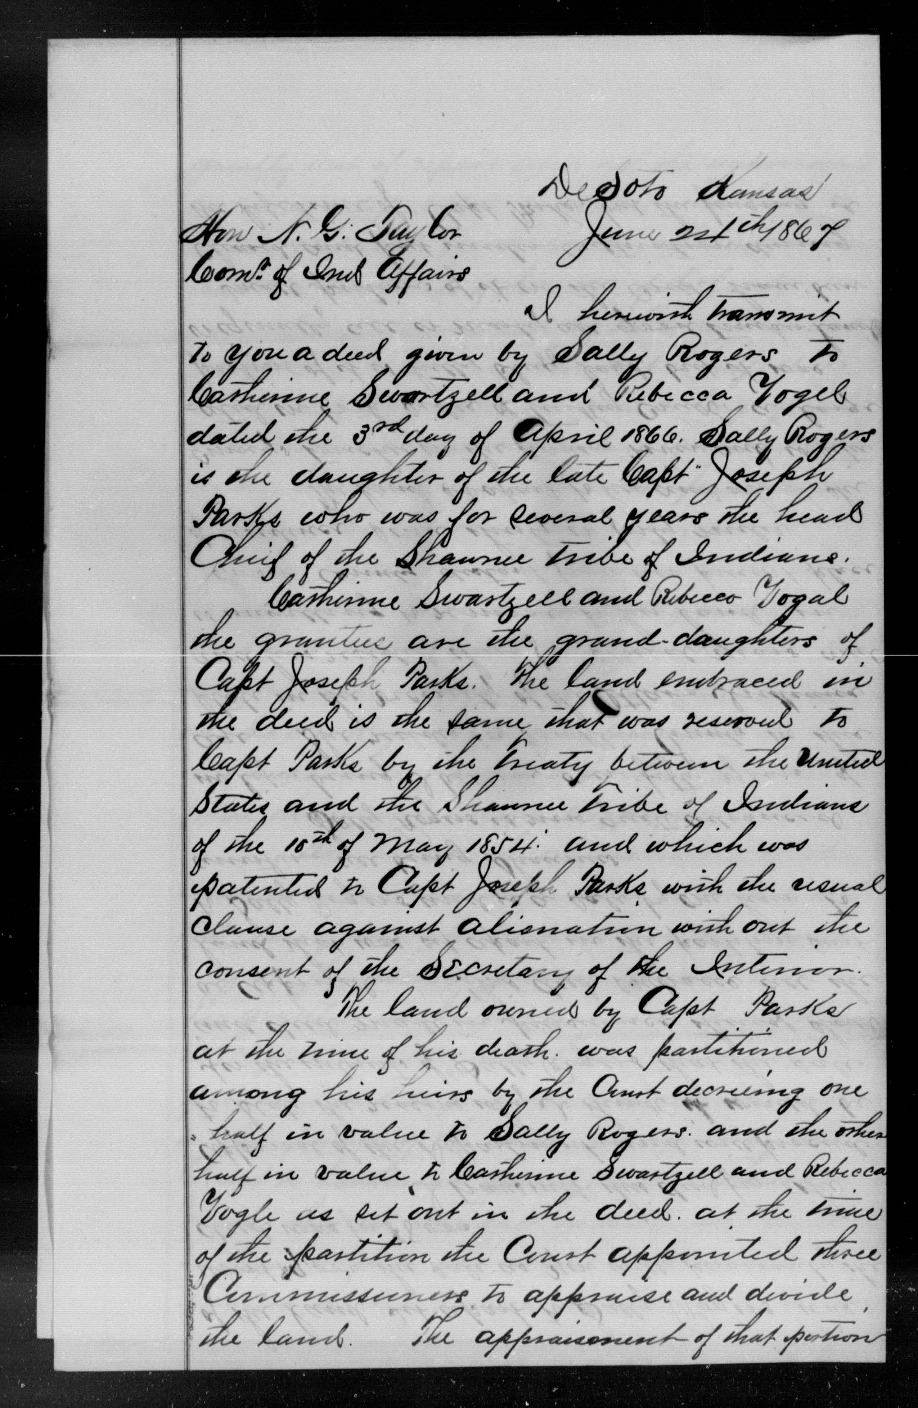 DeSoto Kansas
Hon N. G. Taylor June 24th 1867
Comr. of Ind Affairs
I herewith transmit
to you a deed given by Sally Rogers to
Catherine Swartzell and Rebecca Vogel
dated the 3rd day of April 1866. Sally Rogers
is the daughter of the late Capt Joseph
Parks who was for several years the head
Chief of the Shawnee tribe of Indians.
Catherine Swartzell and Rebecca Vogal
the grantees are the grand-daughters of
Capt Joseph Parks. The land embraced in
the deed is the same that was reserved to
Capt Parks by the Treaty between the United
States and the Shawnee Tribe of Indians
of the 10th of May 1854. and which was
patented to Capt Joseph Parks with the usual
clause against alienation with out the
consent of the Secretary of the Interior.
The land owned by Capt Parks
at the time of his death. was partitioned
among his heirs by the Court decreeing one
half in value to Sally Rogers. and the other
half in value to Catherine Swartzell and Rebecca
Vogle as set out in the deed. at the time
of the partition the Court appointed three
Commissioners to appraise and divide
the land. The appraisement of that portion